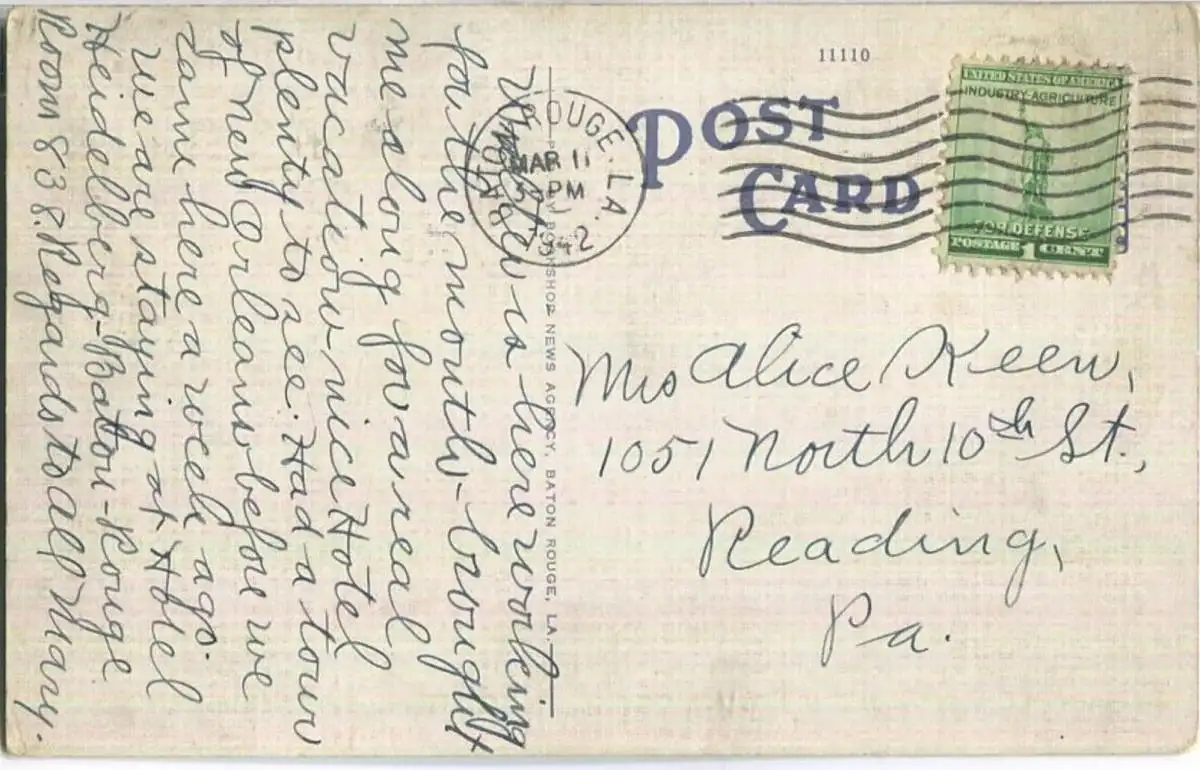 11110
POST
CARD
ROUGE, LA.
MAR 11
PM
1942
UNITED STATES OF AMERICA
INDUSTRY-AGRICULTURE
FOR DEFENSE
POSTAGE 1 CENT
is here working
for the month - brought
me along for a real
vacation nice Hotel
plenty to see. Had a tour
of New Orleans before we
came here a week ago.
We are staying at Hotel
Heidelberg-Baton-Rouge
Room 838. Regards to All Mary.
NEWS AGENCY, BATON ROUGE, LA.
Mrs Alice Keen,
1051 North 10th St.,
Reading,
Pa.